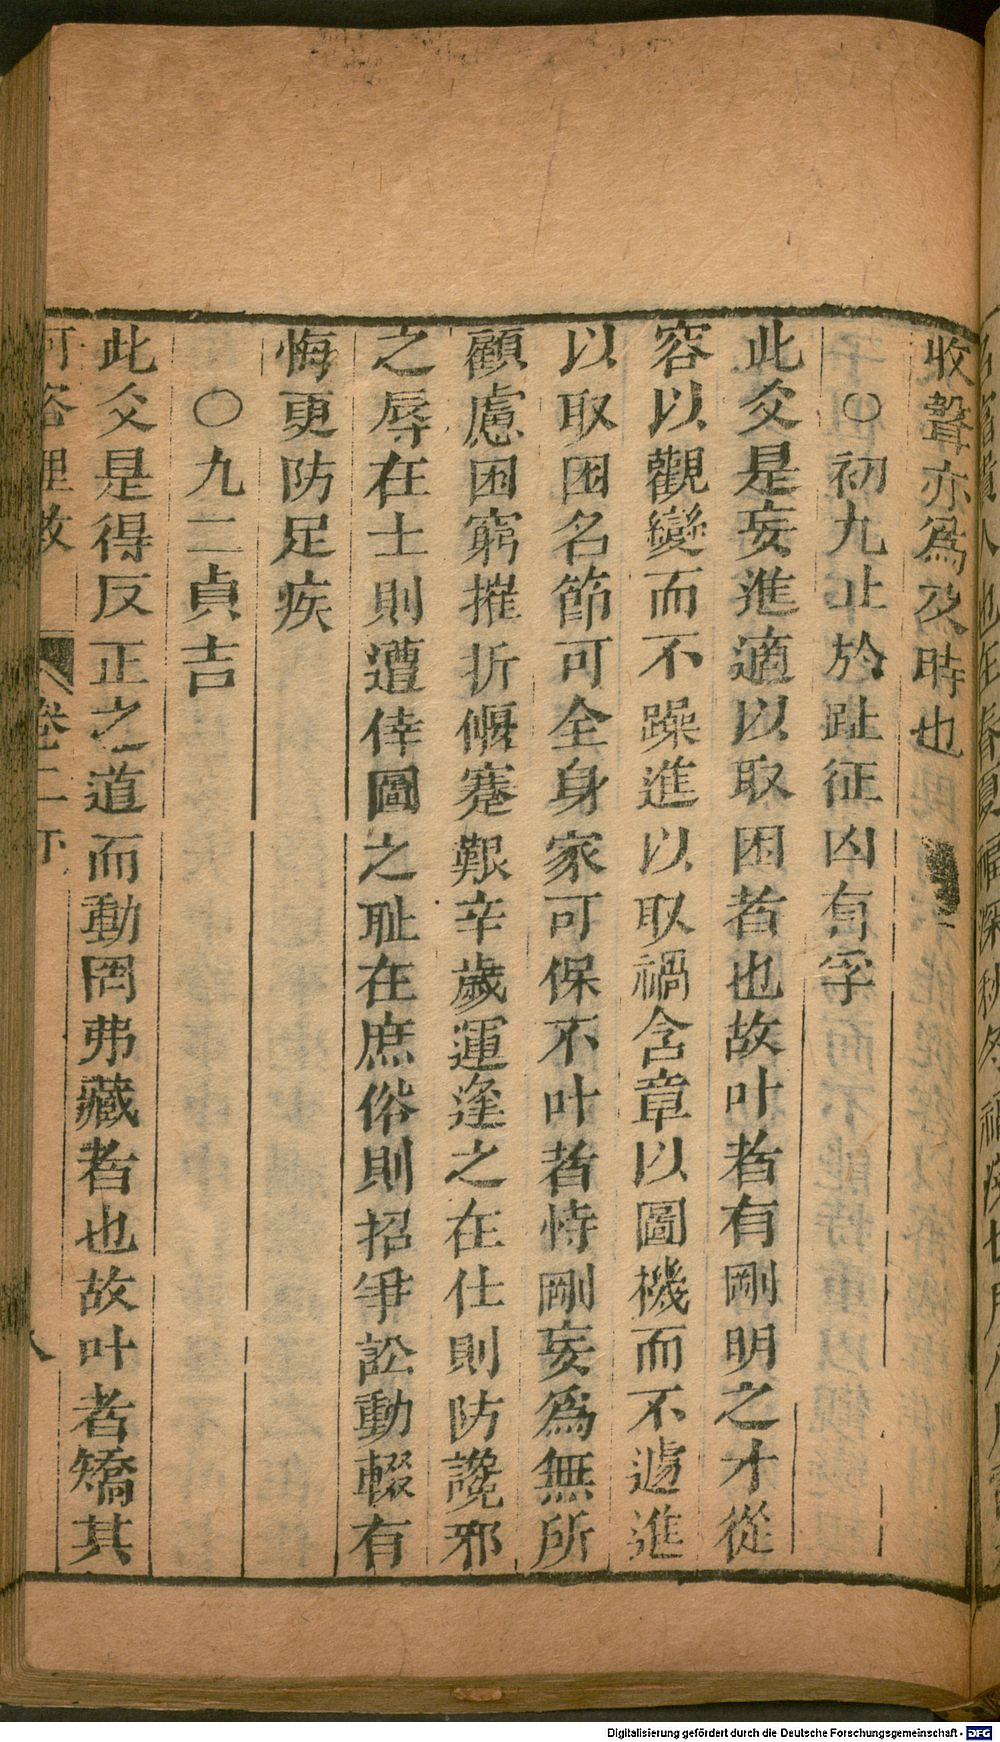 收聲亦爲及時也
○初九止於趾征凶有孚
此爻是妄進適以取困者也故叶者有剛明之才從
容以觀變而不躁進以取禍含章以圖機而不遽進
以取困名節可全身家可保不叶者恃剛妄爲無所
顧慮困窮摧折偃蹇艱辛歲運逢之在仕則防讒邪
之辱在士則遭倖圖之耻在庶俗則招爭訟動輟有
悔更防足疾
○九二貞吉
此爻是得反正之道而動罔弗藏者也故叶者矯其
卷二
八
Digitalisierung gefördert durch die Deutsche Forschungsgemeinschaft - DFG